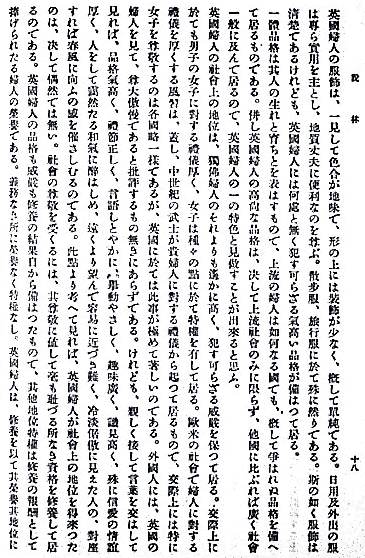 說林
十八
英國婦人の服飾は、一見して色合が地味で、形の上には裝飾が少なく、槪して單純である。日用及外出の服
は專ら實用を主とし、地質丈夫に便利なのを尊ぶ。散步服、旅行服に於て殊に然りである。斯の如く服飾は
淸楚であるけれども、英國婦人には何處と無く犯す可らざる氣高い品格が備はつて居る。
一體品格は其人の生れと育ちとを表はすもので、上流の婦人は如何なる國でも、槪して爭はれぬ品格を備へ
て居るものである。併し英國婦人の高尙な品格は、決して上流社會のみに限らず、他國に比ぶれば廣く社會
一般に及んで居るので、英國婦人の一の特色と見做すことが出來ると思ふ。
英國婦人の社會上の地位は、獨佛婦人のそれよりも遙かに高く、犯す可らざる威嚴を保つて居る。交際上に
於ても男子の女子に對する禮儀厚く、女子は種々の點に於て特權を有して居る。歐米の社會で婦人に對する
禮儀を厚くする風習は、蓋し、中世紀の武士が貴婦人に對する禮儀から起つて居るもので、交際上には特に
女子を尊敬するのは各國一樣であるが、英國に於ては此事が極めて著しいのである。外國人には、英國の
婦人を見て、尊大傲慢であると批評するもの無きにあらずである。けれども、親しく接して言葉を交はして
見れば、品格氣高く、禮節正しく、言語しとやかに、擧動やさしく、趣味廣く、識見高く、殊に信愛の情誼
厚く、人をして靄然たる和氣に醉はしめ、遠くより望んで容易に近づき難く、冷淡倨傲に見えた人の、對座
すれば春風に向ふの感を催さしむるのである。此點より考へて見れば、英國婦人が社會上の地位を得來つた
のは、決して偶然では無い。社會の尊敬を受くるには、其尊敬に値して毫も耻づる所なき資格を修養して居
るのである。英國婦人の品格も威嚴も修養の結果自から備はつたもので、其他地位特權は修養の報酬として
捧げられたる婦人の榮譽である。義務なき所に榮譽なく特權なし。英國婦人は、修養を以て其榮譽其地位に